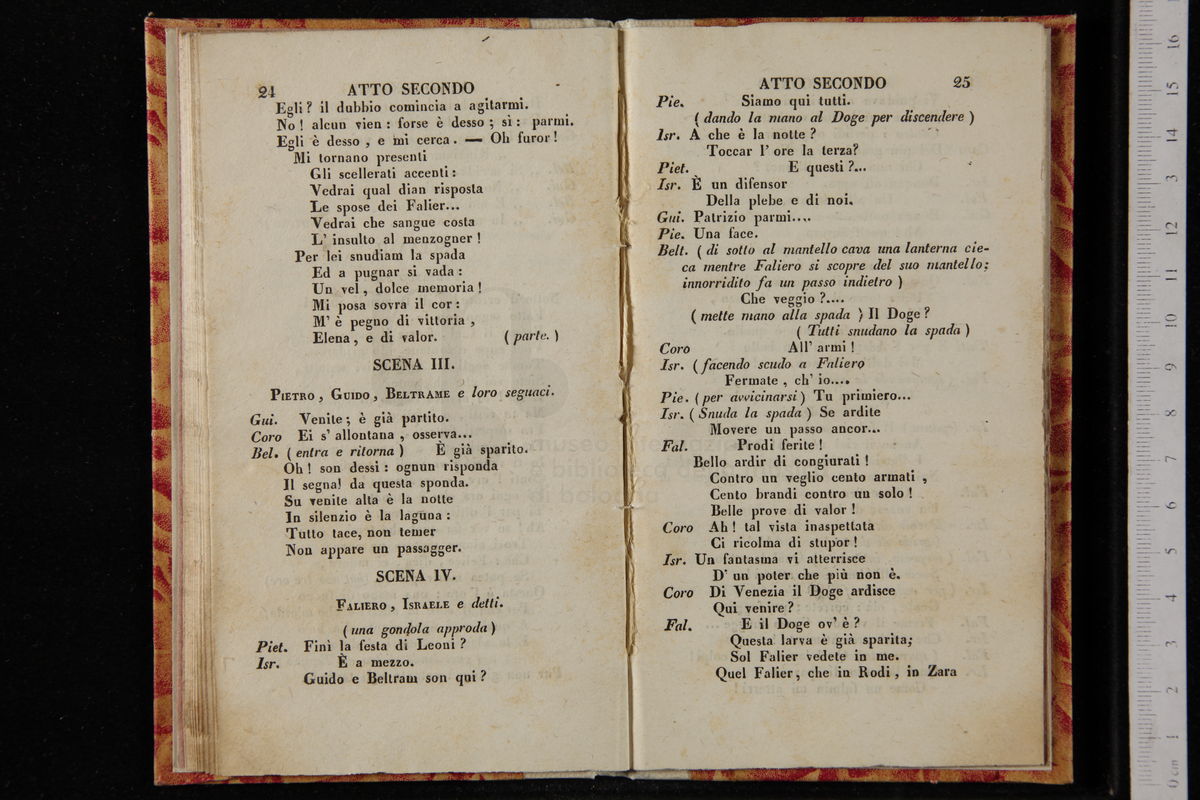 24 ATTO SECONDO
Egli? il dubbio comincia a agitarmi.
No! alcun vien: forse è desso; sì: parmi.
Egli è desso, e mi cerca. — Oh furor!
Mi tornano presenti
Gli scellerati accenti:
Vedrai qual dian risposta
Le spose dei Falier...
Vedrai che sangue costa
L' insulto al menzogner!
Per lei snudiam la spada
Ed a pugnar si vada:
Un vel, dolce memoria!
Mi posa sovra il cor:
M' è pegno di vittoria,
Elena, e di valor. (parte.)
SCENA III.
PIETRO, GUIDO, BELTRAME e loro seguaci.
Gui. Venite; è già partito.
Coro Ei s' allontana, osserva...
Bel. (entra e ritorna) È già sparito.
Oh! son dessi: ognun risponda
Il segnal da questa sponda.
Su venite alta è la notte
In silenzio è la laguna:
Tutto tace, non temer
Non appare un passagger.
SCENA IV.
FALIERO, ISRAELE e detti.
(una gondola approda)
Piet. Finì la festa di Leoni?
Isr. È a mezzo.
Guido e Beltram son qui?
ATTO SECONDO 25
Pie. Siamo qui tutti.
(dando la mano al Doge per discendere)
Isr. A che è la notte?
Toccar l' ore la terza?
Piet. E questi?...
Isr. È un difensor
Della plebe e di noi.
Gui. Patrizio parmi....
Pie. Una face.
Belt. (di sotto al mantello cava una lanterna cie-
ca mentre Faliero si scopre del suo mantello;
innorridito fa un passo indietro)
Che veggio?....
(mette mano alla spada) Il Doge?
(Tutti snudano la spada)
Coro All' armi!
Isr. (facendo scudo a Faliero
Fermate, ch' io....
Pie. (per avvicinarsi) Tu primiero...
Isr. (Snuda la spada) Se ardite
Movere un passo ancor...
Fal. Prodi ferite!
Bello ardir di congiurati!
Contro un veglio cento armati,
Cento brandi contro un solo!
Belle prove di valor!
Coro Ah! tal vista inaspettata
Ci ricolma di stupor!
Isr. Un fantasma vi atterrisce
D' un poter che più non è.
Coro Di Venezia il Doge ardisce
Qui venire?
Fal. E il Doge ov' è?
Questa larva è già sparita;
Sol Falier vedete in me.
Quel Falier, che in Rodi, in Zara